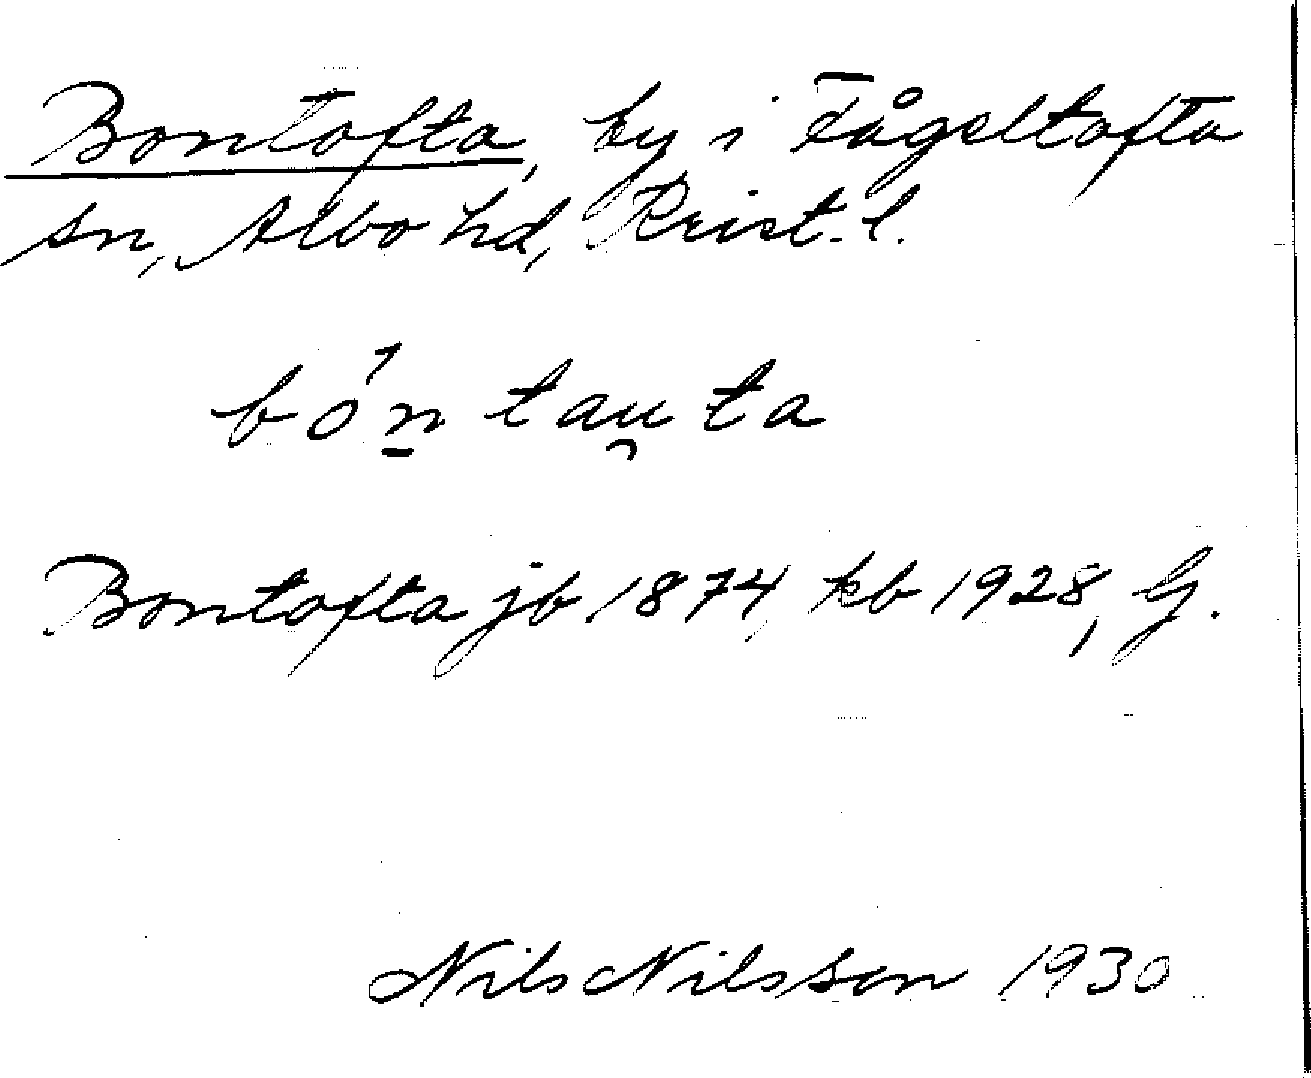 Bontofta, by i Fågeltofta
sn, Albo hd, Krist. l.
bón̲tau̯ta
Bontofta jb 1874, kb 1928, G.
Nils Nilsson 1930